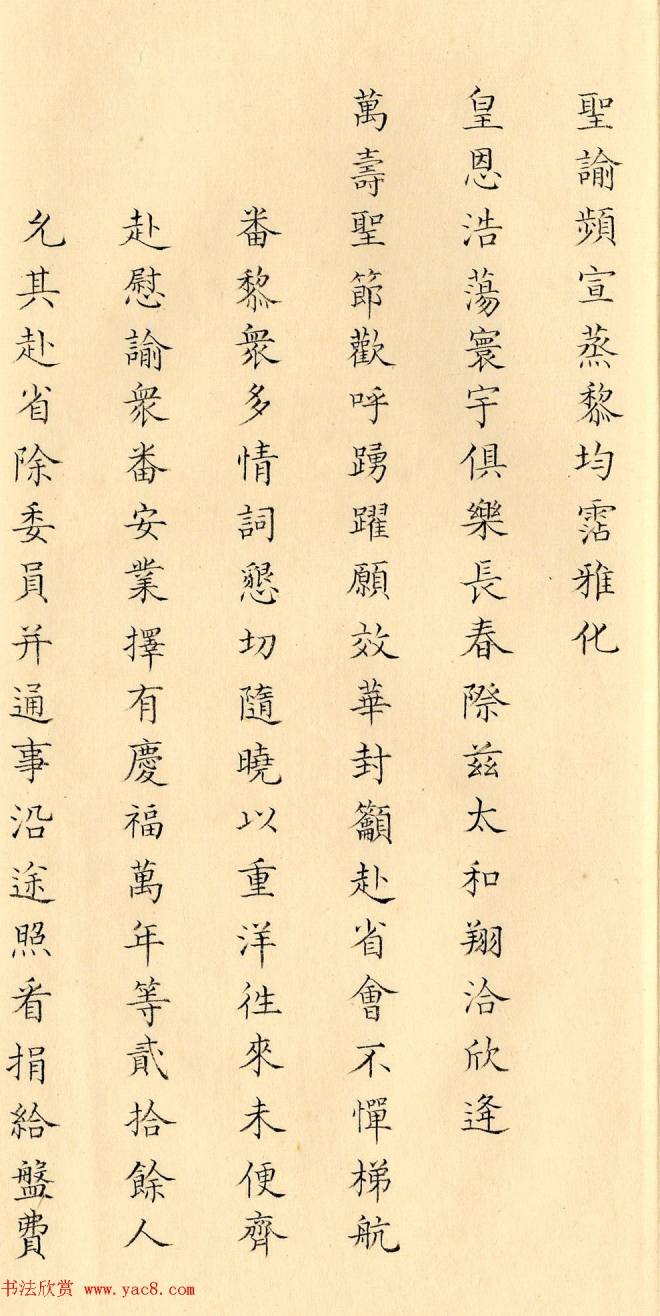 聖諭頻宣蒸黎均霑雅化
皇恩浩蕩寰宇俱樂長春際兹太和翔洽欣逢
萬壽聖節歡呼踴躍願效華封籲赴省會不憚梯航
番黎衆多情詞懇切隨曉以重洋徃來未便齊
赴慰諭衆番安業擇有慶福萬年等貳拾餘人
允其赴省除委員并通事沿途照看捐給盤費
书法欣赏 www.yac8.com